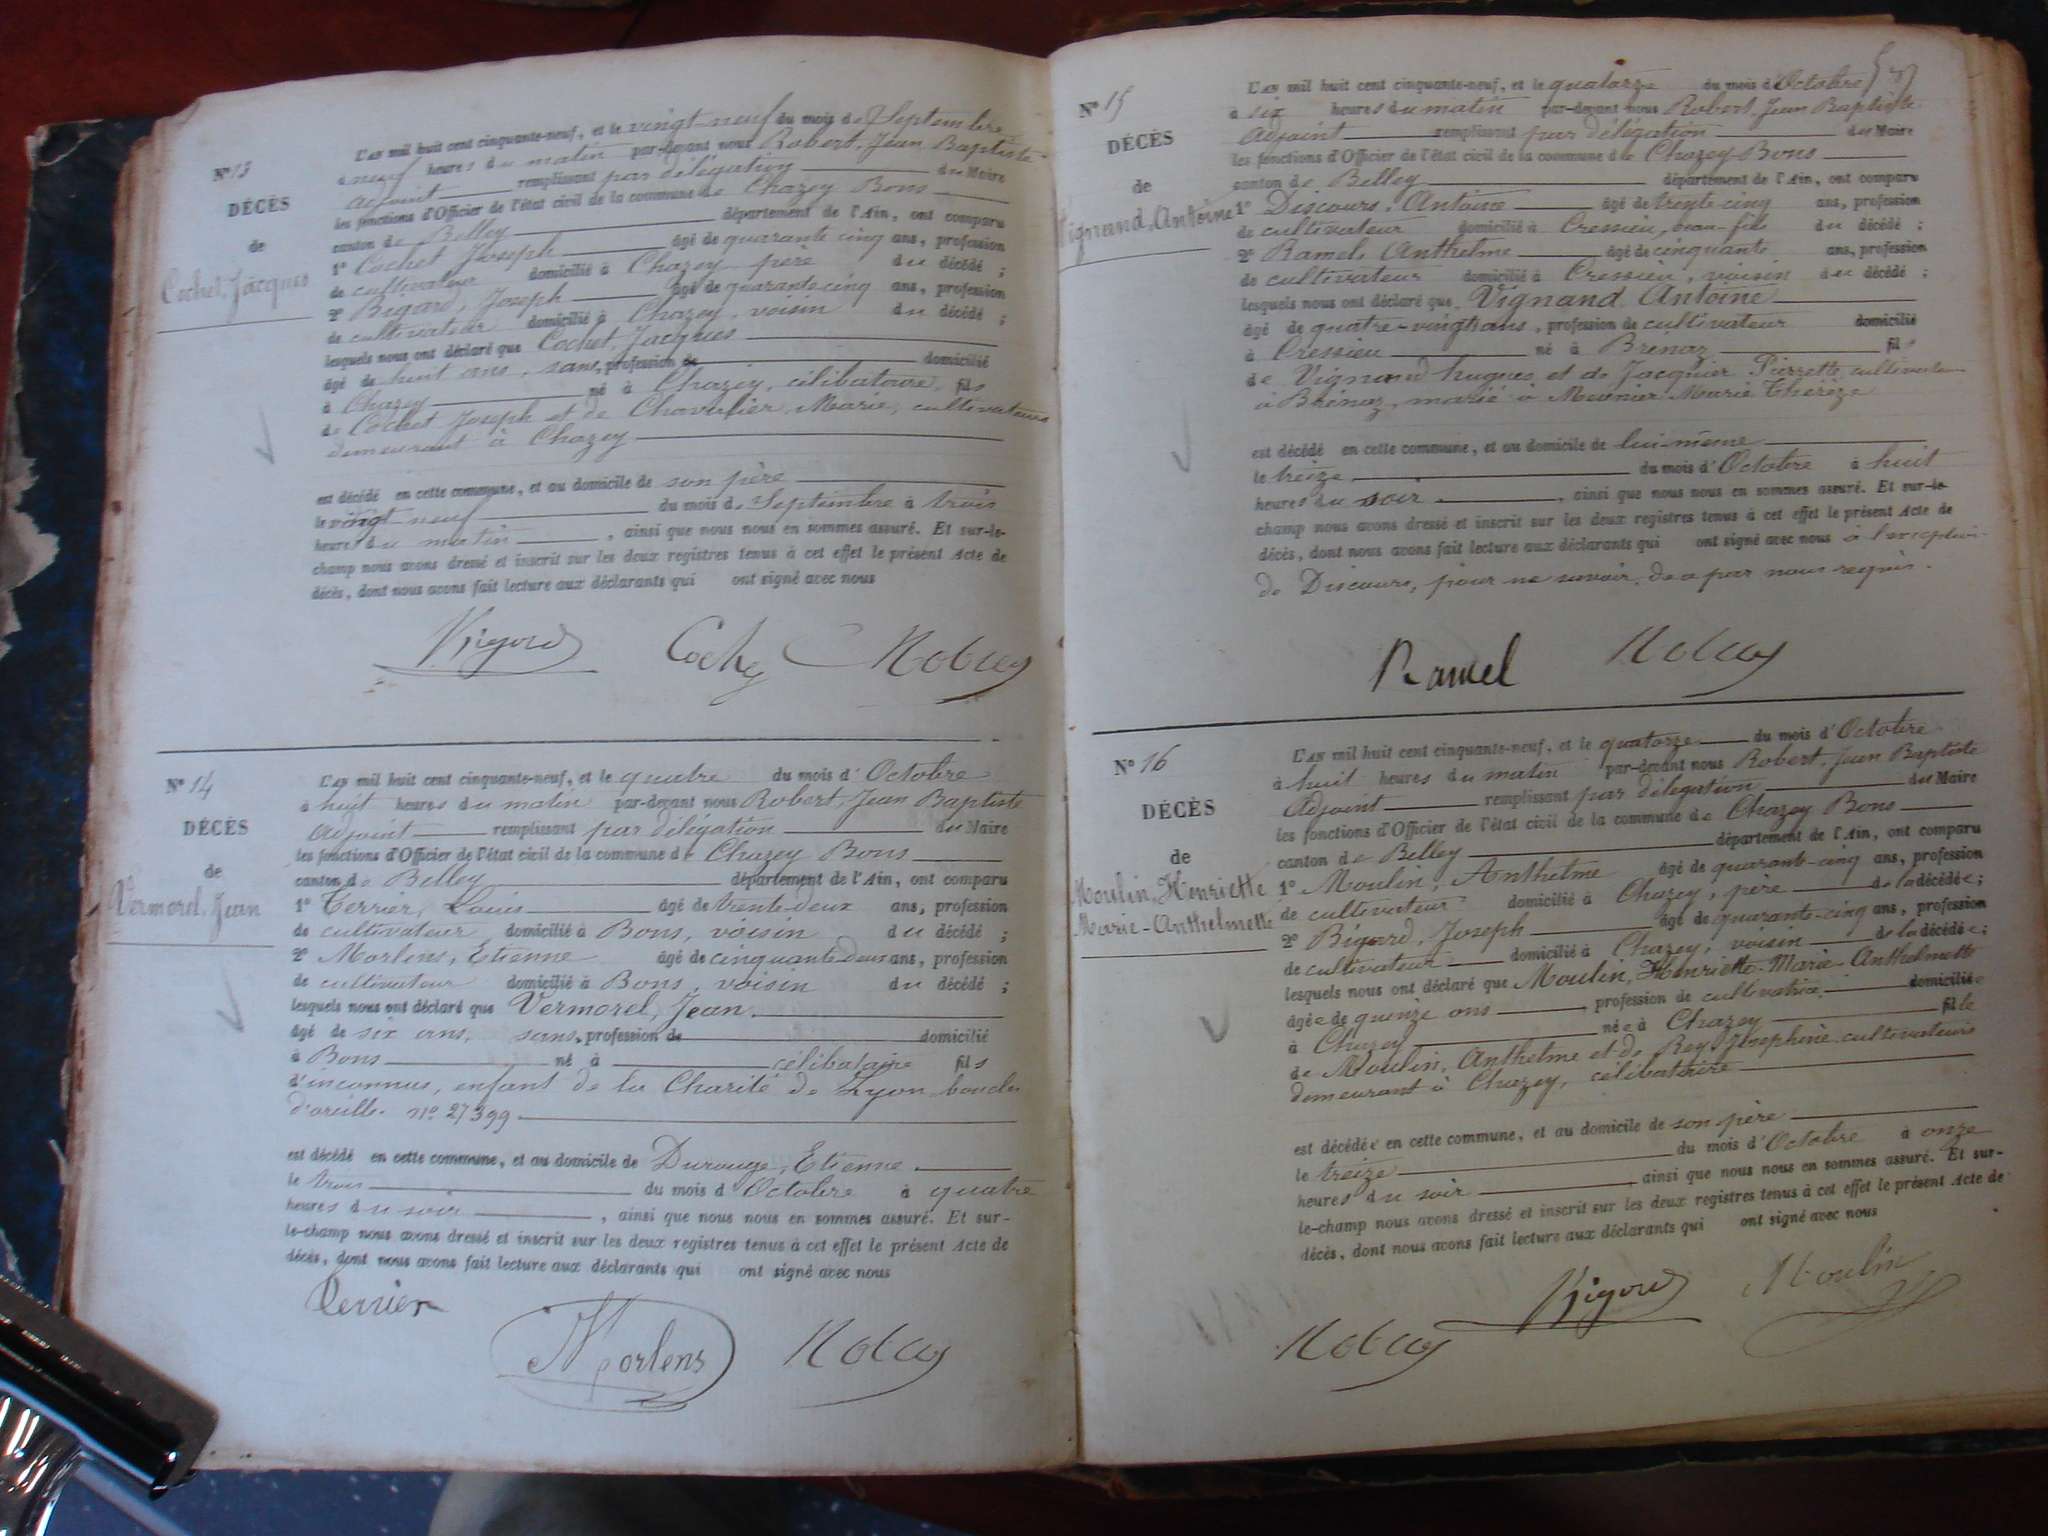 Nº 13
DÉCÈS
de
Cochet, Jacques
L'AN mil huit cent cinquante-neuf, et le vingt-neuf du mois de Septembre
à neuf heures du matin par-devant nous Robert, Jean Baptiste
Adjoint remplissant par délégation du Maire
les fonctions d'Officier de l'état civil de la commune de Chazey Bons
canton de Belley département de l'Ain, ont comparu
1º Cochet Joseph âgé de quarante cinq ans, profession
de cultivateur domicilié à Chazey père du décédé ;
2º Bigard, Joseph âgé de quarante-cinq ans, profession
de cultivateur domicilié à Chazey, voisin du décédé ;
lesquels nous ont déclaré que Cochet, Jacques
âgé de huit ans, sans profession de domicilié
à Chazey né à Chazey, célibataire, fils
de Cochet Joseph et de Chavalier, Marie, cultivateurs
demeurant à Chazey
est décédé en cette commune, et au domicile de son père
le vingt-neuf du mois de Septembre à trois
heures du matin, ainsi que nous nous en sommes assuré. Et sur-le-
champ nous avons dressé et inscrit sur les deux registres tenus à cet effet le présent Acte de
décès, dont nous avons fait lecture aux déclarants qui ont signé avec nous
Bigard Cochet Robert
Nº 14
DÉCÈS
de
Vermorel, Jean
L'AN mil huit cent cinquante-neuf, et le quatre du mois d'Octobre
à huit heures du matin par-devant nous Robert, Jean Baptiste
Adjoint remplissant par délégation du Maire
les fonctions d'Officier de l'état civil de la commune de Chazey Bons
canton de Belley département de l'Ain, ont comparu
1º Terrier, Louis âgé de trente-deux ans, profession
de cultivateur domicilié à Bons, voisin du décédé ;
2º Morlens, Etienne âgé de cinquante-deux ans, profession
de cultivateur domicilié à Bons, voisin du décédé ;
lesquels nous ont déclaré que Vermorel, Jean
âgé de six ans, sans profession de domicilié
à Bons né à célibataire fils
d'inconnus, enfant de la Charité de Lyon boucles
d'oreille nº 27399
est décédé en cette commune, et au domicile de Durouge, Etienne
le trois du mois d'Octobre à quatre
heures du soir, ainsi que nous nous en sommes assuré. Et sur-
le-champ nous avons dressé et inscrit sur les deux registres tenus à cet effet le présent Acte de
décès, dont nous avons fait lecture aux déclarants qui ont signé avec nous
Terrier Morlens Robert
Nº 15
DÉCÈS
de
Vignand, Antoine
L'AN mil huit cent cinquante-neuf, et le quatorze du mois d'Octobre
à six heures du matin par-devant nous Robert, Jean Baptiste
Adjoint remplissant par délégation du Maire
les fonctions d'Officier de l'état civil de la commune de Chazey-Bons
canton de Belley département de l'Ain, ont comparu
1º Discours, Antoine âgé de trente cinq ans, profession
de cultivateur domicilié à Cressieu, beau-fils du décédé ;
2º Ramel, Anthelme âgé de cinquante ans, profession
de cultivateur domicilié à Cressieu, voisin du décédé ;
lesquels nous ont déclaré que Vignand Antoine
âgé de quatre-vingt ans, profession de cultivateur domicilié
à Cressieu né à Brenaz fils
de Vignand hugues et de Jacquier Pierrette cultivateurs
à Brénaz, marié à Meunier Marie Thérèze
est décédé en cette commune, et au domicile de lui-même
le treize du mois d'Octobre à huit
heures du soir, ainsi que nous nous en sommes assuré. Et sur-le-
champ nous avons dressé et inscrit sur les deux registres tenus à cet effet le présent Acte de
décès, dont nous avons fait lecture aux déclarants qui ont signé avec nous à l'exception
de Discours, pour ne savoir, de ce par nous requis.
Ramel Robert
Nº 16
DÉCÈS
de
Moulin, Henriette
Marie-Anthelmette
L'AN mil huit cent cinquante-neuf, et le quatorze du mois d'Octobre
à huit heures du matin par-devant nous Robert, Jean Baptiste
Adjoint remplissant par délégation du Maire
les fonctions d'Officier de l'état civil de la commune de Chazey Bons
canton de Belley département de l'Ain, ont comparu
1º Moulin, Anthelme âgé de quarante-cinq ans, profession
de cultivateur domicilié à Chazey, père de la décédée ;
2º Bigard, Joseph âgé de quarante-cinq ans, profession
de cultivateur domicilié à Chazey, voisin de la décédée ;
lesquels nous ont déclaré que Moulin, Henriette-Marie-Anthelmette
âgée de quinze ans profession de cultivatrice domiciliée
à Chazey née à Chazey fille
de Moulin, Anthelme et de Rey Joséphine cultivateurs
demeurant à Chazey, célibataire
est décédée en cette commune, et au domicile de son père
le treize du mois d'Octobre à onze
heures du soir, ainsi que nous nous en sommes assuré. Et sur-
le-champ nous avons dressé et inscrit sur les deux registres tenus à cet effet le présent Acte de
décès, dont nous avons fait lecture aux déclarants qui ont signé avec nous
Robert Bigard Moulin